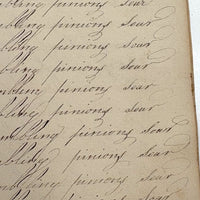 bling pinions soar
mbling pinions soar
bling pinions soar
bling pinions soar
bling pinions soar
bling pinions soar
mbling pinions soar
bling pinions soar
mbling pinions soar